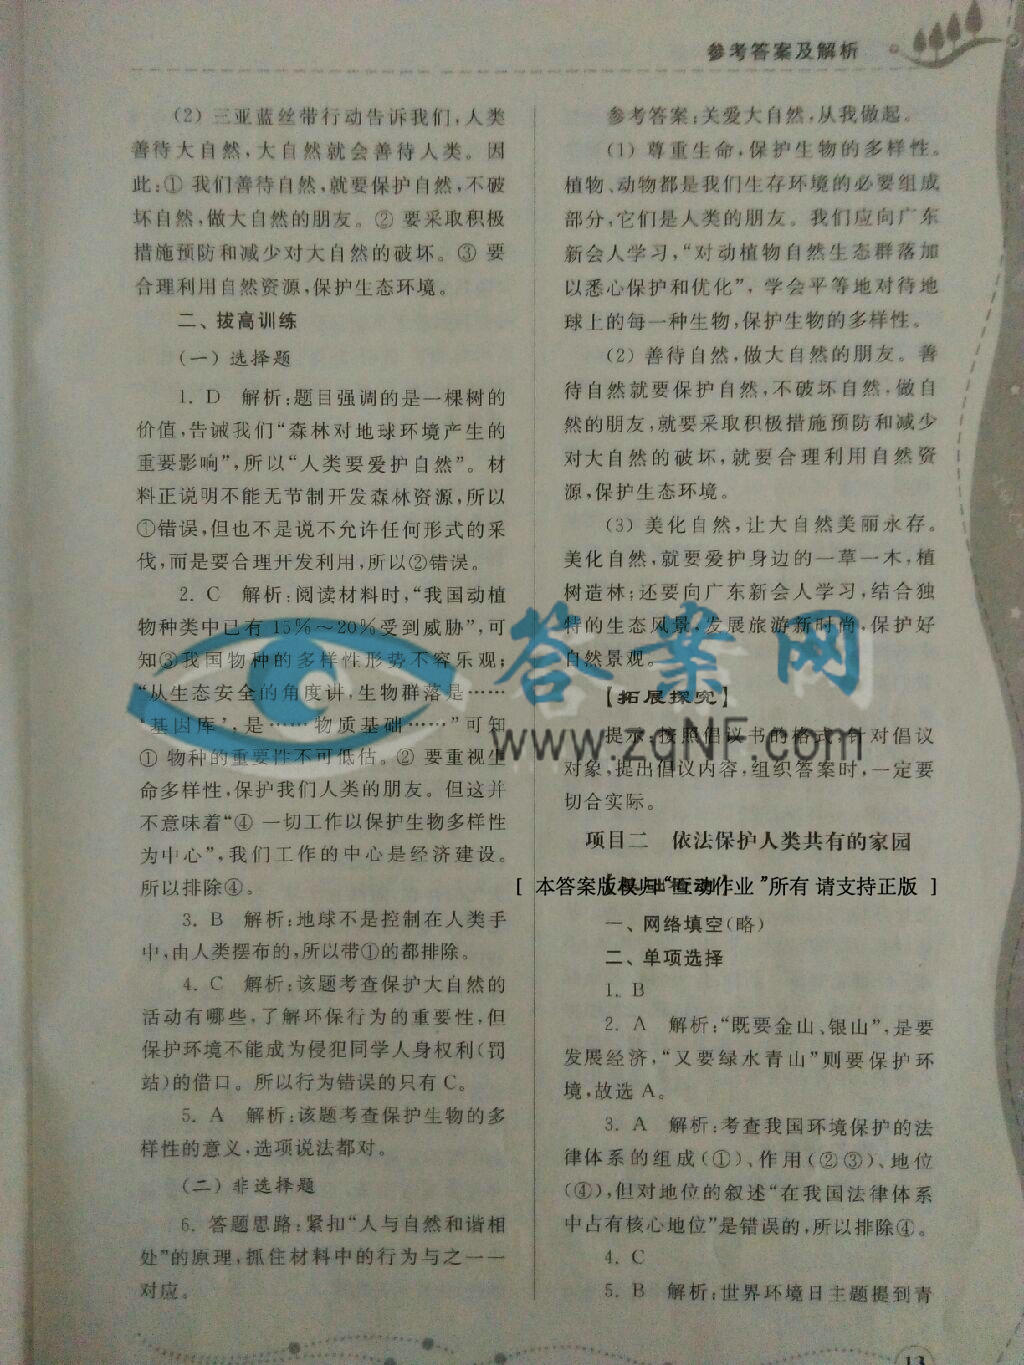 参考答案及解析
（2）三亚蓝丝带行动告诉我们，人类
善待大自然，大自然就会善待人类。因
此：① 我们善待自然，就要保护自然，不破
坏自然，做大自然的朋友。② 要采取积极
措施预防和减少对大自然的破坏。③ 要
合理利用自然资源，保护生态环境。
二、拔高训练
（一）选择题
1. D　解析：题目强调的是一棵树的
价值，告诫我们“森林对地球环境产生的
重要影响”，所以“人类要爱护自然”。材
料正说明不能无节制开发森林资源，所以
①错误，但也不是说不允许任何形式的采
伐，而是要合理开发利用，所以②错误。
2. C　解析：阅读材料时，“我国动植
物种类中已有 15％～20％受到威胁”，可
知③我国物种的多样性形势不容乐观；
“从生态安全的角度讲，生物群落是……
‘基因库’，是……物质基础……”可知
① 物种的重要性不可低估。② 要重视生
命多样性，保护我们人类的朋友。但这并
不意味着“④ 一切工作以保护生物多样性
为中心”，我们工作的中心是经济建设。
所以排除④。
3. B　解析：地球不是控制在人类手
中，由人类摆布的，所以带①的都排除。
4. C　解析：该题考查保护大自然的
活动有哪些，了解环保行为的重要性，但
保护环境不能成为侵犯同学人身权利（罚
站）的借口。所以行为错误的只有 C。
5. A　解析：该题考查保护生物的多
样性的意义，选项说法都对。
（二）非选择题
6. 答题思路：紧扣“人与自然和谐相
处”的原理，抓住材料中的行为与之一一
对应。
参考答案：关爱大自然，从我做起。
（1）尊重生命，保护生物的多样性。
植物、动物都是我们生存环境的必要组成
部分，它们是人类的朋友。我们应向广东
新会人学习，“对动植物自然生态群落加
以悉心保护和优化”，学会平等地对待地
球上的每一种生物，保护生物的多样性。
（2）善待自然，做大自然的朋友。善
待自然就要保护自然，不破坏自然，做自
然的朋友，就要采取积极措施预防和减少
对大自然的破坏，就要合理利用自然资
源，保护生态环境。
（3）美化自然，让大自然美丽永存。
美化自然，就要爱护身边的一草一木，植
树造林；还要向广东新会人学习，结合独
特的生态风景，发展旅游新时尚，保护好
自然景观。
答案网
【拓展探究】
www.zqNF.com
提示：按照倡议书的格式，针对倡议
对象，提出倡议内容，组织答案时，一定要
切合实际。
项目二　依法保护人类共有的家园
[ 本答案版权归“互动作业”所有 请支持正版 ]
一、网络填空（略）
二、单项选择
1. B
2. A　解析：“既要金山、银山”，是要
发展经济，“又要绿水青山”则要保护环
境，故选 A。
3. A　解析：考查我国环境保护的法
律体系的组成（①）、作用（②③）、地位
（④），但对地位的叙述“在我国法律体系
中占有核心地位”是错误的，所以排除④。
4. C
5. B　解析：世界环境日主题提到青
13